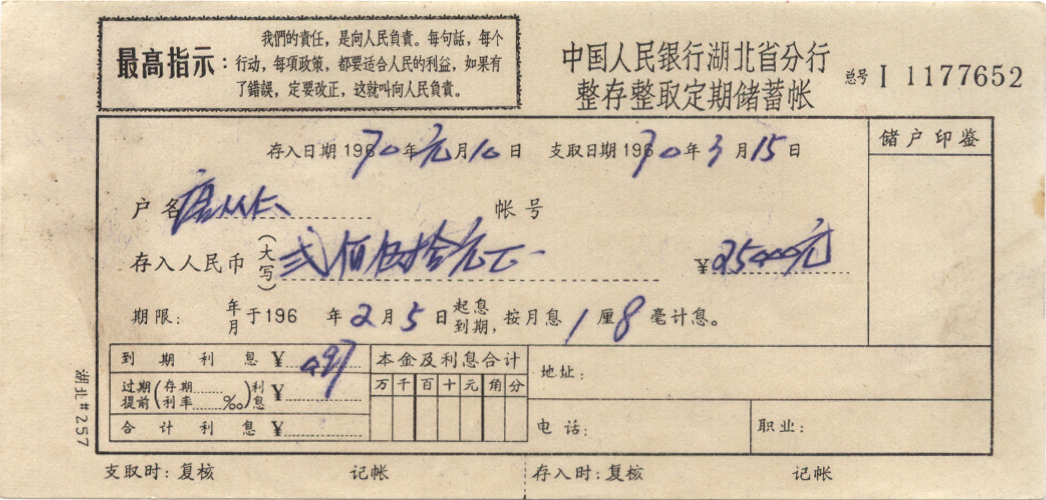 最高指示:
我們的責任,是向人民負責。每句話,每个
行动,每項政策,都要适合人民的利益,如果有
了錯誤,定要改正,这就叫向人民負責。
中国人民银行湖北省分行
整存整取定期储蓄帐
总号 I 1177652
存入日期 196 70年元月10日 支取日期 196 70年3月15日
储户印鉴
户名 帐号
存入人民币(大写)弍佰伍拾元正 ¥250.00元
期限: 年月于196 年2月5日起息到期,按月息1厘8毫计息。
到期利息¥0.97
过期提前(存期 利率 ‰)利息¥
合计利息¥
本金及利息合计
万千百十元角分
地址:
电话: 职业:
湖北#257
支取时:复核 记帐 存入时:复核 记帐